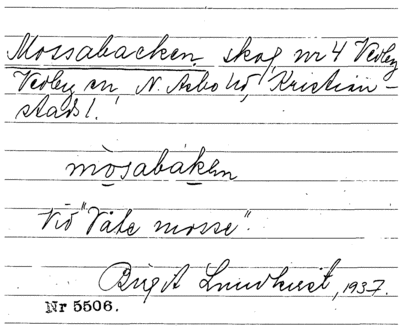 Mossabacken, skog, nr 4 Vedby
Vedby sn, N. Åsbo hd, Kristian-
stads l.
mòsabákən
Vid "Våte mosse".
Birgit Lundkvist, 1937.
Nr 5506.